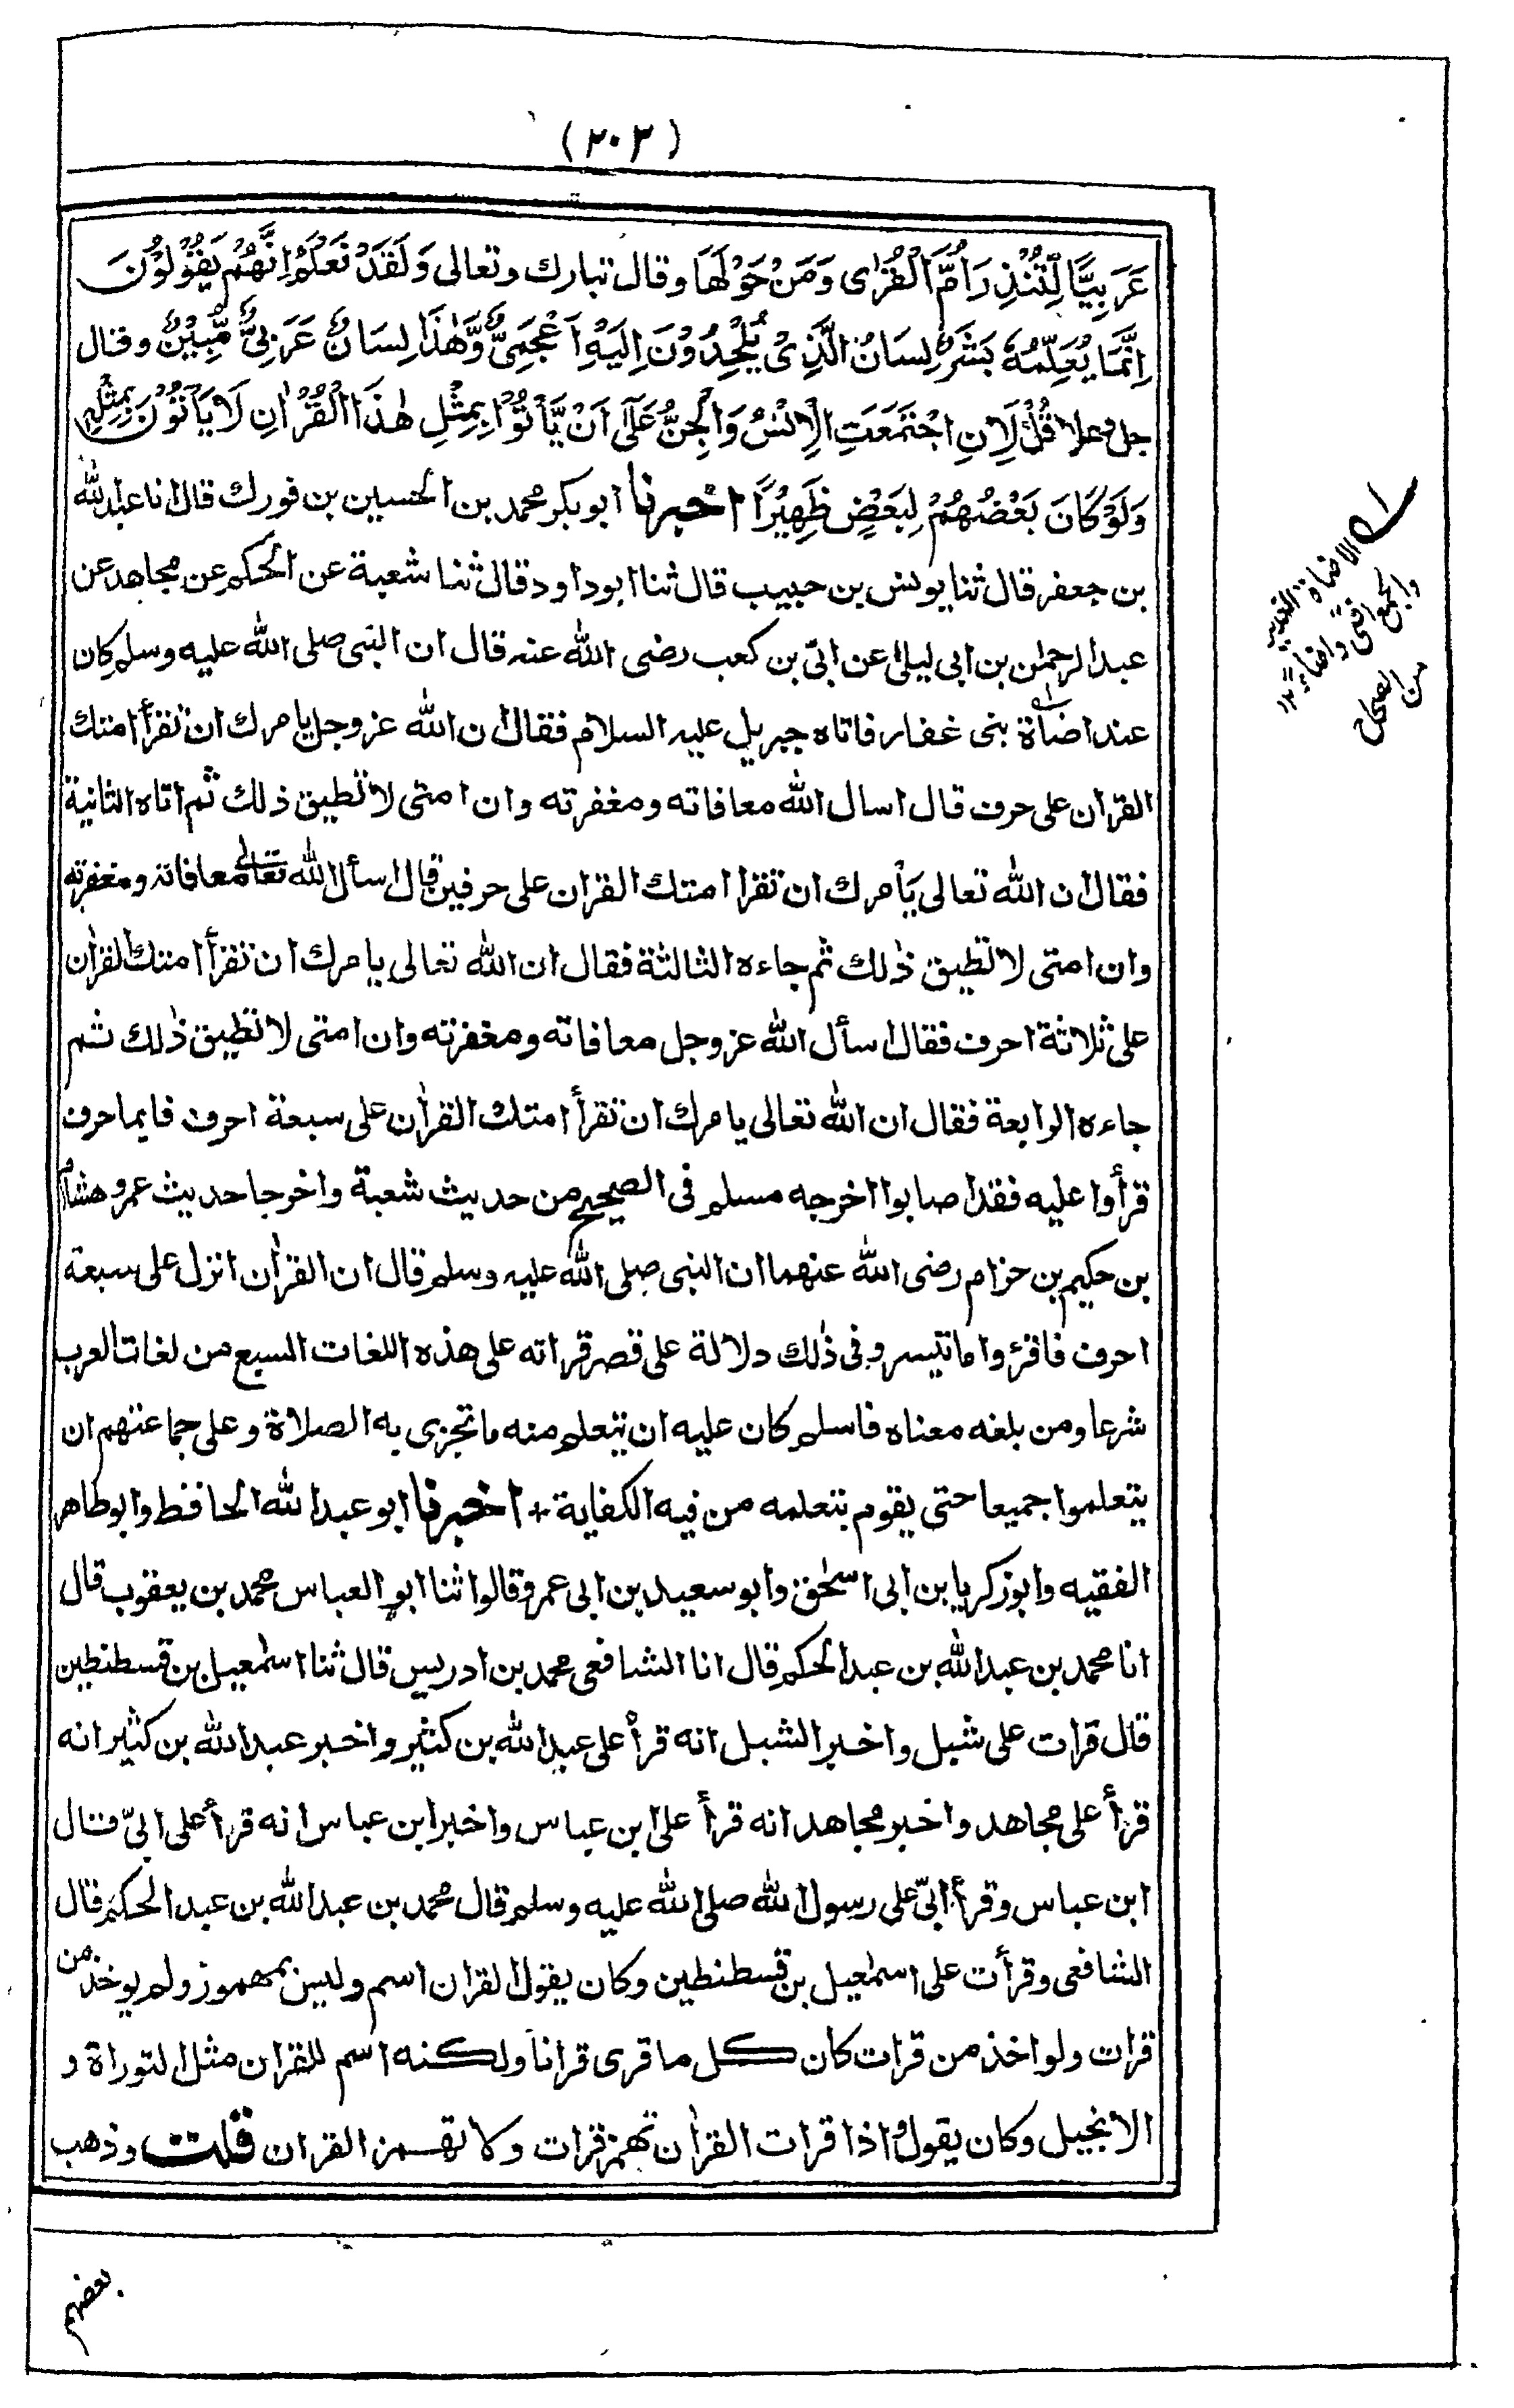 (٢٠٣)
عَرَبِيًّا لِّتُنْذِرَ اُمَّ الْقُرٰى وَمَنْ حَوْلَهَا وقال تبارك وتعالى وَلَقَدْ نَعْلَمُ اَنَّهُمْ يَقُوْلُوْنَ
اِنَّمَا يُعَلِّمُهٗ بَشَرٌ لِسَانُ الَّذِىْ يُلْحِدُوْنَ اِلَيْهِ اَعْجَمِىٌّ وَّهٰذَا لِسَانٌ عَرَبِىٌّ مُّبِيْنٌ وقال
جل وعلا قُلْ لَئِنِ اجْتَمَعَتِ الْاِنْسُ وَالْجِنُّ عَلٰٓى اَنْ يَّأْتُوْا بِمِثْلِ هٰذَا الْقُرْاٰنِ لَا يَأْتُوْنَ بِمِثْلِهٖ
وَلَوْ كَانَ بَعْضُهُمْ لِبَعْضٍ ظَهِيْرًا اخبرنا ابو بكر محمد بن الحسين بن فورك قال انا عبد الله
بن جعفر قال ثنا يونس بن حبيب قال ثنا ابو داود قال ثنا شعبة عن الحكم عن مجاهد عن
عبد الرحمٰن بن ابى ليلىٰ عن ابىّ بن كعب رضى الله عنه قال ان النبى صلى الله عليه وسلم كان
عند اضاة بنى غفار فاتاه جبريل عليه السلام فقال ان الله عز وجل يامرك ان تقرأ امتك
القران على حرف قال اسال الله معافاته ومغفرته وان امتى لا تطيق ذلك ثم اتاه الثانية
فقال ان الله تعالى يأمرك ان تقرا امتك القران على حرفين قال اسأل الله تعالى معافاته ومغفرته
وان امتى لا تطيق ذٰلك ثم جاءه الثالثة فقال ان الله تعالى يامرك ان تقرأ امتك القرٰان
على ثلاثة احرف فقال اسأل الله عز وجل معافاته ومغفرته وان امتى لا تطيق ذٰلك ثم
جاءه الرابعة فقال ان الله تعالى يامرك ان تقرأ امتك القرٰان على سبعة احرف فايما حرف
قرأوا عليه فقد اصابوا اخرجه مسلم فى الصحيح من حديث شعبة واخرجا حديث عمر وهشام
بن حكيم بن حزام رضى الله عنهما ان النبى صلى الله عليه وسلم قال ان القرٰان انزل على سبعة
احرف فاقرؤا ما تيسر وفى ذٰلك دلالة على قصر قراته على هذه اللغات السبع من لغات العرب
شرعا ومن بلغه معناه فاسلم كان عليه ان يتعلم منه ما تجزى به الصلاة وعلى جماعتهم ان
يتعلموا جميعا حتى يقوم بتعلمه من فيه الكفاية + اخبرنا ابو عبد الله الحافظ وابو طاهر
الفقيه وابو زكريا بن ابى اسحٰق وابو سعيد بن ابى عمرو قالوا ثنا ابو العباس محمد بن يعقوب قال
انا محمد بن عبد الله بن عبد الحكم قال انا الشافعى محمد بن ادريس قال ثنا اسمٰعيل بن قسطنطين
قال قرات على شبل واخبر الشبل انه قرأ على عبد الله بن كثير واخبر عبد الله بن كثير انه
قرأ على مجاهد واخبر مجاهد انه قرأ على ابن عباس واخبر ابن عباس انه قرأ على ابىّ قال
ابن عباس وقرأ ابىّ على رسول الله صلى الله عليه وسلم قال محمد بن عبد الله بن عبد الحكم قال
الشافعى وقرأت على اسمٰعيل بن قسطنطين وكان يقول القران اسم وليس بمهموز ولم يوخذ من
قرات ولو اخذ من قرات كان كل ما قرى قرانا ولكنه اسم للقران مثل التوراة و
الانجيل وكان يقول واذا قرات القرٰان تهمز قرات ولا تهمز القران قلت وذهب
بعضهم
الاضاة الغدير
والجمع اضى واضاء
من الصحاح